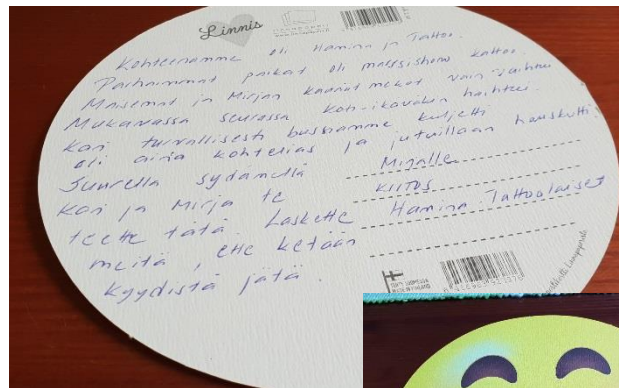 Linnis
Kohteenamme oli Hamina ja Tattoo.
Parhaimmat paikat oli marssishow kattoo.
Maisemat ja Mirjan kauniit mekot vain vaihtui
Mukavassa seurassa koti-ikäväkin haihtui.
Kari turvallisesti bussiamme kuljetti
oli aina kohtelias ja jutuillaan hauskutti!
Suurella sydämellä
Kari ja Mirja te
teette tätä. Laskette
meitä, ette ketään
kyydistä jätä.
Mirjalle
KIITOS
Hamina Tattoolaiset